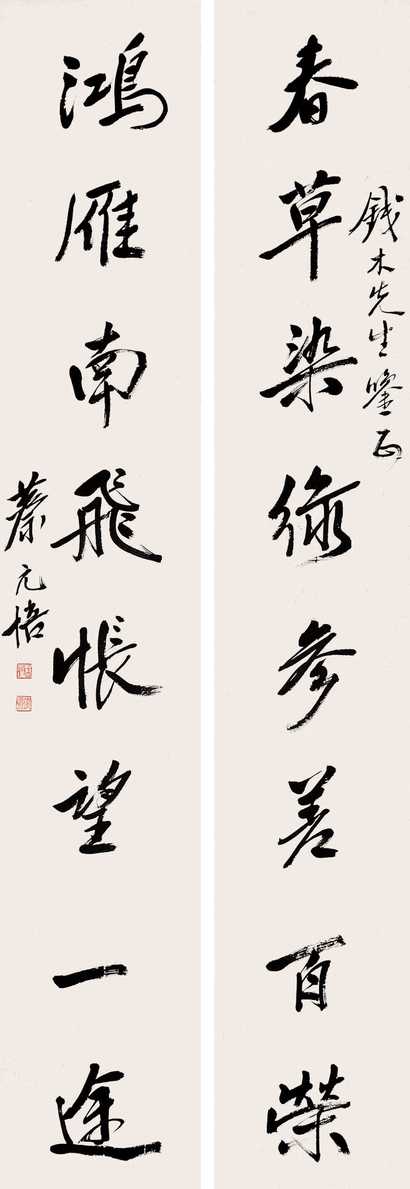 春草染綠參差百榮
鐵木先生鑒正
鴻雁南飛悵望一途
蔡元培